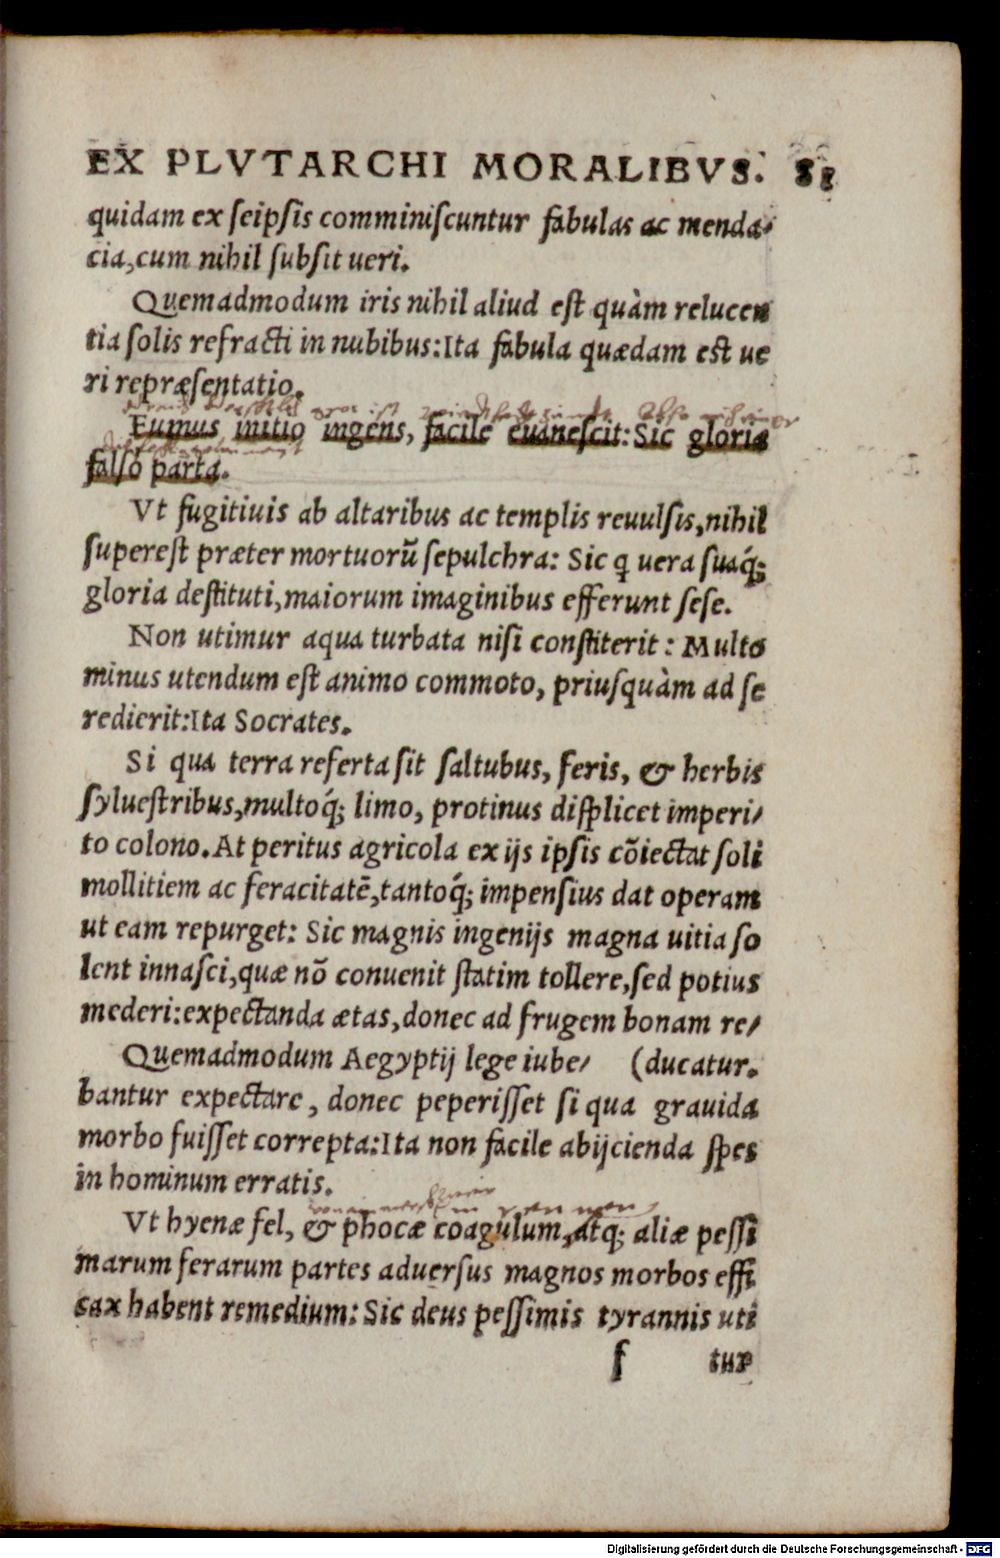 EX PLVTARCHI MORALIBVS. 81
quidam ex seipsis comminiscuntur fabulas ac menda/
cia, cum nihil subsit ueri.
Quemadmodum iris nihil aliud est quàm relucen
tia solis refracti in nubibus: Ita fabula quædam est ue
ri repræsentatio.
Fumus initio ingens, facile euanescit: Sic gloria
falso parta.
Vt fugitiuis ab altaribus ac templis reuulsis, nihil
superest præter mortuorũ sepulchra: Sic q uera suaq́;
gloria destituti, maiorum imaginibus efferunt sese.
Non utimur aqua turbata nisi constiterit: Multo
minus utendum est animo commoto, priusquàm ad se
redierit: Ita Socrates.
Si qua terra referta sit saltubus, feris, & herbis
syluestribus, multoq́; limo, protinus displicet imperi/
to colono. At peritus agricola ex ijs ipsis cõiectat soli
mollitiem ac feracitatẽ, tantoq́; impensius dat operam
ut eam repurget: Sic magnis ingenijs magna uitia so
lent innasci, quæ nõ conuenit statim tollere, sed potius
mederi: expectanda ætas, donec ad frugem bonam re/
Quemadmodum Aegyptij lege iube/ (ducatur.
bantur expectare, donec peperisset si qua grauida
morbo fuisset correpta: Ita non facile abijcienda spes
in hominum erratis.
Vt hyenæ fel, & phocæ coagulum, atq; aliæ pessi
marum ferarum partes aduersus magnos morbos effi
cax habent remedium: Sic deus pessimis tyrannis uti
f tur
Digitalisierung gefördert durch die Deutsche Forschungsgemeinschaft - DFG